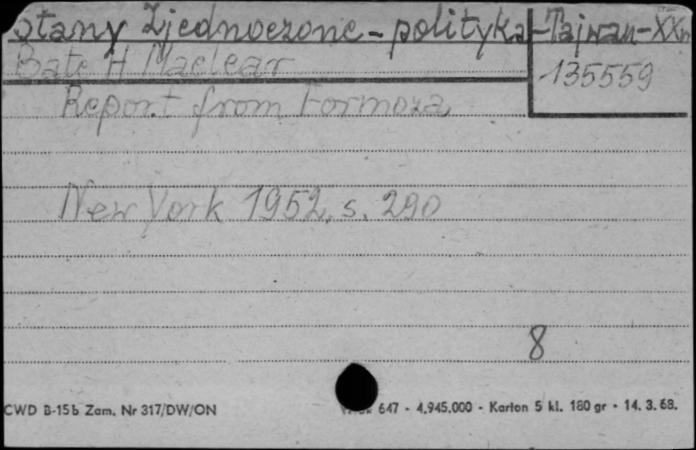 Stany Zjednoczone - polityka - Tajwan - XX w
Bate H Maclear
135559
Report from Formoza
New York 1952, s. 290
8
CWD B-15b Zam. Nr 317/DW/ON
647 - 4.945.000 - Karton 5 kl. 180 gr - 14. 3. 68.